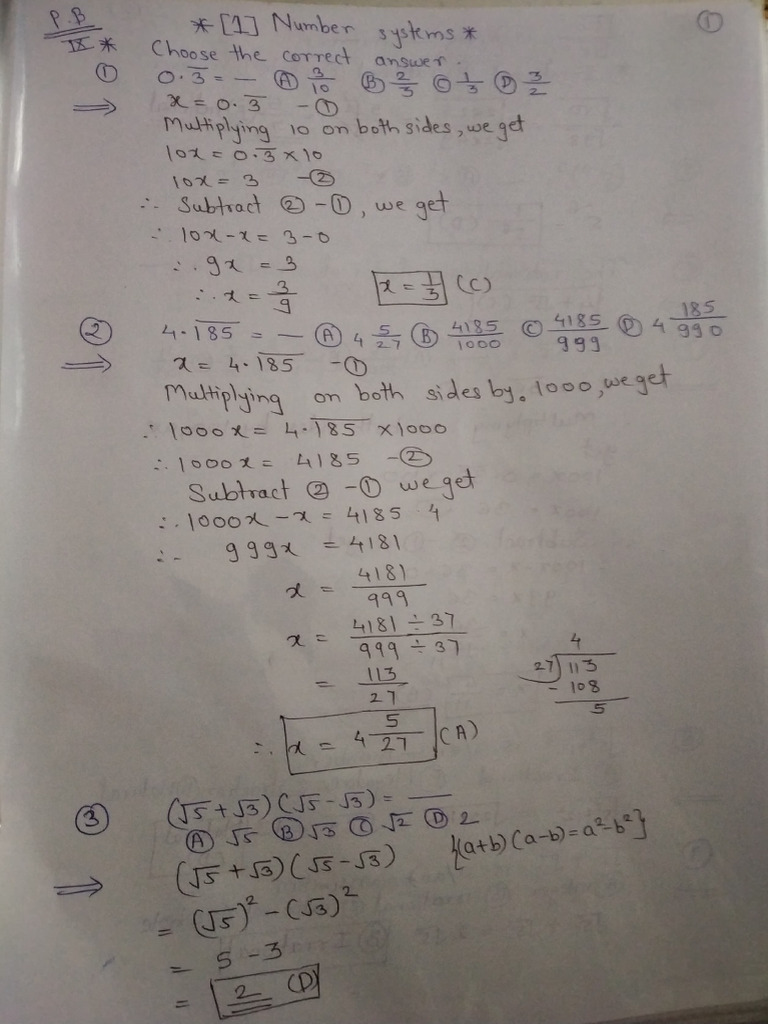 P.B
IX *
* [1] Number systems *
①
Choose the correct answer.
① 0.3̅ = — Ⓐ 3/10 Ⓑ 2/3 Ⓒ 1/3 Ⓓ 3/2
⇒ x = 0.3̅ - ①
Multiplying 10 on both sides, we get
10x = 0.3̅ × 10
10x = 3 - ②
∴ Subtract ② - ①, we get
∴ 10x - x = 3 - 0
∴ 9x = 3
∴ x = 3/9 x = 1/3 (C)
② 4.1̅8̅5̅ = — Ⓐ 4 5/27 Ⓑ 4185/1000 Ⓒ 4185/999 Ⓓ 4 185/990
⇒ x = 4.1̅8̅5̅ - ①
Multiplying on both sides by. 1000, we get
∴ 1000x = 4.1̅8̅5̅ × 1000
∴ 1000x = 4185 - ②
Subtract ② - ① we get
∴ 1000x - x = 4185 - 4
∴ 999x = 4181
x = 4181/999
x = 4181 ÷ 37 / 999 ÷ 37
= 113/27
4
27)113
- 108
5
∴ x = 4 5/27 (A)
③ (√5 + √3) (√5 - √3) = —
Ⓐ √5 Ⓑ √3 Ⓒ √2 Ⓓ 2
⇒ (√5 + √3) (√5 - √3) {(a+b) (a-b) = a² - b²}
= (√5)² - (√3)²
= 5 - 3
= 2 (D)